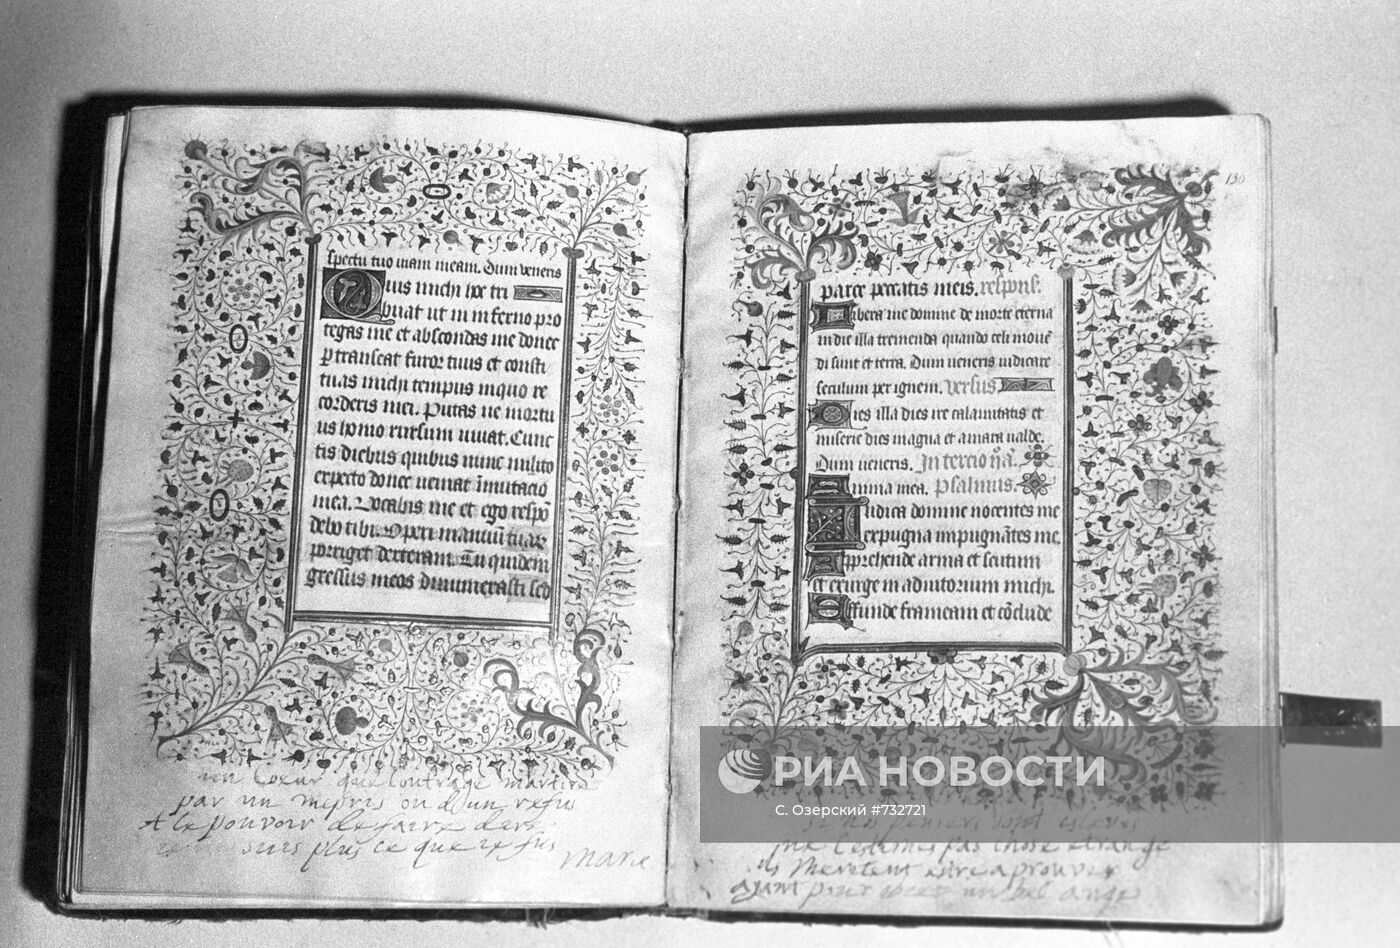 spectu tuo viam meam. Dum veneris
Quis michi hoc tri
buat ut in inferno pro
tegas me et abscondas me donec
p̱transeat furor tuus et consti
tuas michi tempus in quo re
corderis mei. Putas ne mortu
us homo rursum vivat. Cunc
tis diebus quibus nunc milito
expecto donec veniat īmutacio
mea. Vocabis me et ego respō
debo tibi. Operi manuū tuarz
porriget dexteram. Tu quidem
gressus meos dinumerasti sed
un Coeur que loutrage martire
par un mepris ou dun refus
A le pouvoir de faire dire
suis plus ce que ie fus
Marie
130
parce peccatis meis. respons.
Libera me domine de morte eterna
in die illa tremenda quando celi mouē
di sunt et terra. Dum veneris iudicare
seculum per ignem. versus
Dies illa dies ire calamitatis et
miserie dies magna et amara valde.
Dum veneris. In tercio nā.
Anima mea. Psalmus.
Iudica domine nocentes me
expugna impugnātes me.
Apprehende arma et scutum
et exurge in adiutorium michi.
Effunde frameam et cōclude
РИА НОВОСТИ
С. Озерский #732721
Si nos pensers sont esleves
ne lestimes pas chose etrange
ils meritent estre aprouver
ayant pour un bel ange